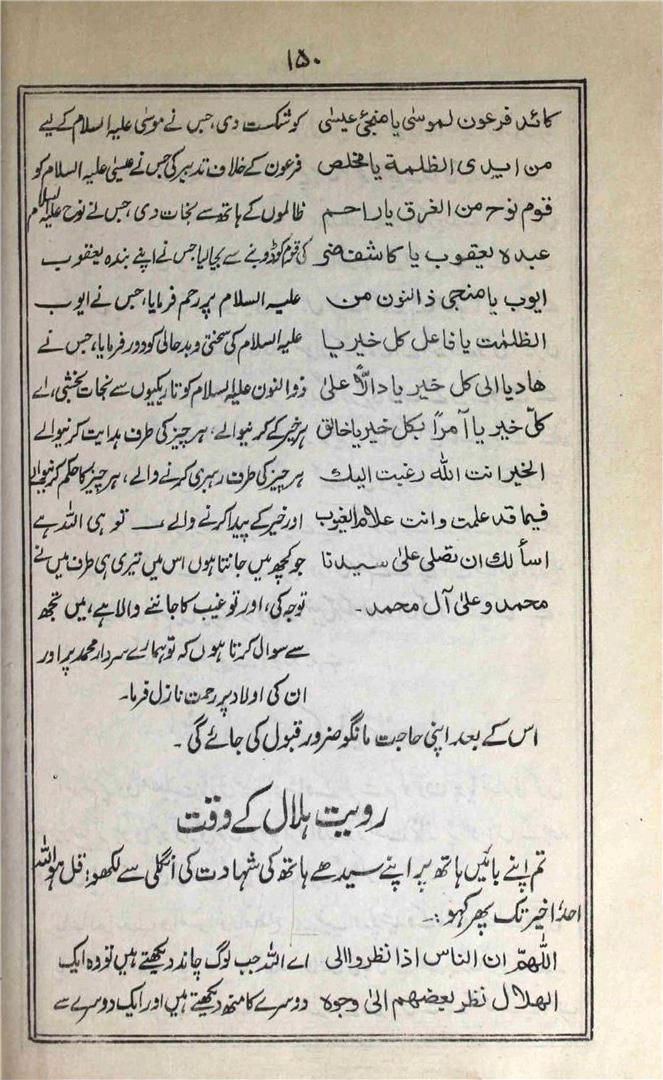 ۱۵۰
کائد فرعون لموسیٰ یا منجیٔ عیسیٰ
من ایدی الظلمة یا مخلص
قوم نوح من الغرق یا راحم
عبدہ یعقوب یا کاشف ضر
ایوب یا منجی ذالنون من
الظلمٰت یا فاعل کل خیر یا
ھادیا الی کل خیر یا دالاً علیٰ
کلّ خیر یا آمراً بکل خیر یا خالق
الخیر انت اللہ رغبت الیک
فیما قد علمت وانت علام الغیوب
اسألک ان تصلی علیٰ سیدنا
محمد وعلیٰ آل محمد۔
کو شکست دی، جس نے موسیٰ علیہ السلام کے لیے
فرعون کے خلاف تدبیر کی جس نے عیسیٰ علیہ السلام کو
ظالموں کے ہاتھ سے نجات دی، جس نے نوح علیہ السلام
کی قوم کو ڈوبنے سے بچالیا جس نے اپنے بندہ یعقوب
علیہ السلام پر رحم فرمایا، جس نے ایوب
علیہ السلام کی سختی و بدحالی کو دور فرمایا، جس نے
ذوالنون علیہ السلام کو تاریکیوں سے نجات بخشی، اے
ہر خیر کے کرنیوالے، ہر چیز کی طرف ہدایت کرنیوالے
ہر چیز کی طرف رہبری کرنے والے، ہر چیز کا حکم کرنیوالے
اور خیر کے پیدا کرنے والے ــ تو ہی اللہ ہے
جو کچھ میں جانتا ہوں اس میں تیری ہی طرف میں نے
توجہ کی، اور تو غیب کا جاننے والا ہے، میں تجھ
سے سوال کرتا ہوں کہ تو ہمارے سردار محمد پر اور
ان کی اولاد پر رحمت نازل فرما۔
اس کے بعد اپنی حاجت مانگو ضرور قبول کی جائے گی۔
رویت ہلال کے وقت
تم اپنے بائیں ہاتھ پر اپنے سیدھے ہاتھ کی شہادت کی انگلی سے لکھو: قل ہو اللہ
احد اخیر تک پھر کہو:۔
اللھمّ ان الناس اذا نظروا الی
الھلال نظر بعضھم الیٰ وجوہ
اے اللہ جب لوگ چاند دیکھتے ہیں تو وہ ایک
دوسرے کا منھ دیکھتے ہیں اور ایک دوسرے سے